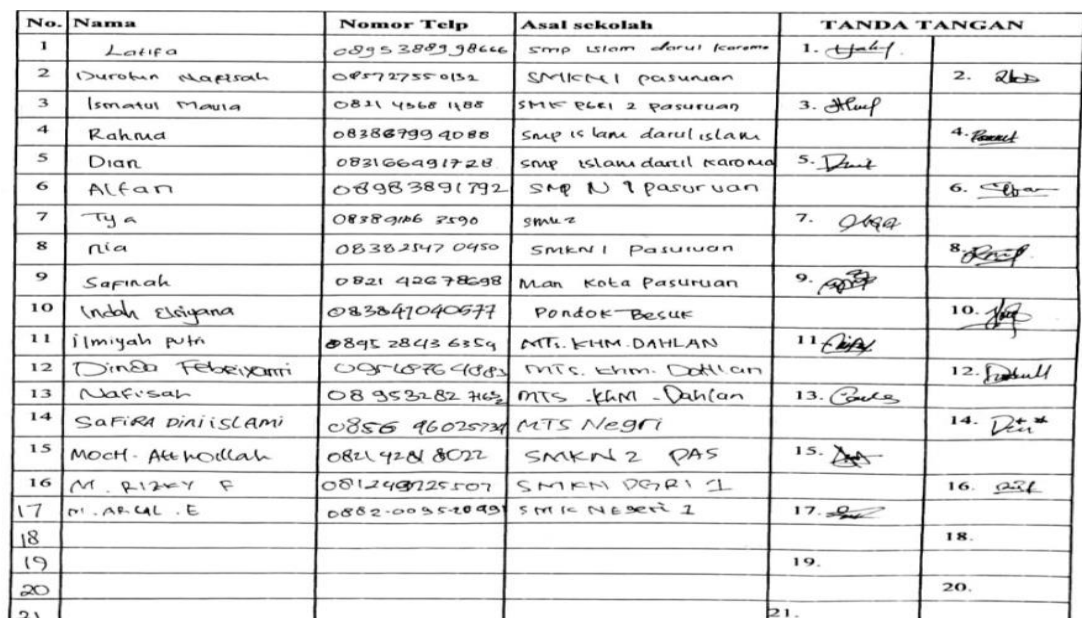 No. Nama Nomor Telp Asal sekolah TANDA TANGAN
1 Latifa 089538898666 smp islam darul karoma 1.
2 Durotun Nafisah 085727550132 SMKN 1 pasuruan 2.
3 Ismatul Maula 0821 4568 1188 SMK PGRI 2 pasuruan 3.
4 Rahma 083867994088 smp islam darul islam 4.
5 Dian 083166491728 smp islam darul karoma 5.
6 Alfan 08983891792 SMP N 9 pasuruan 6.
7 Tya 3590 smk 2 7.
8 nia 083825470450 SMKN 1 Pasuruan 8.
9 Safinah 0821 42678698 Man Kota Pasuruan 9.
10 Indah 083847040677 Pondok Besuk 10.
11 ilmiyah putri 0895 2843 6354 MTs. KHM. DAHLAN 11
12 Dinda MTs. Khm. Dahlan 12.
13 Nafisah 08 953282 MTS . KHM . Dahlan 13.
14 SAFIRA DINI ISLAMI 0856 96025734 MTS Negri 14.
15 MOCH. 8022 SMKN 2 PAS 15.
16 M. RIZKY F SMKN PGRI 1 16.
17 M. E 0882-0095-20491 SMK NEGERI 1 17.
18 18.
19 19.
20 20.
21 21.